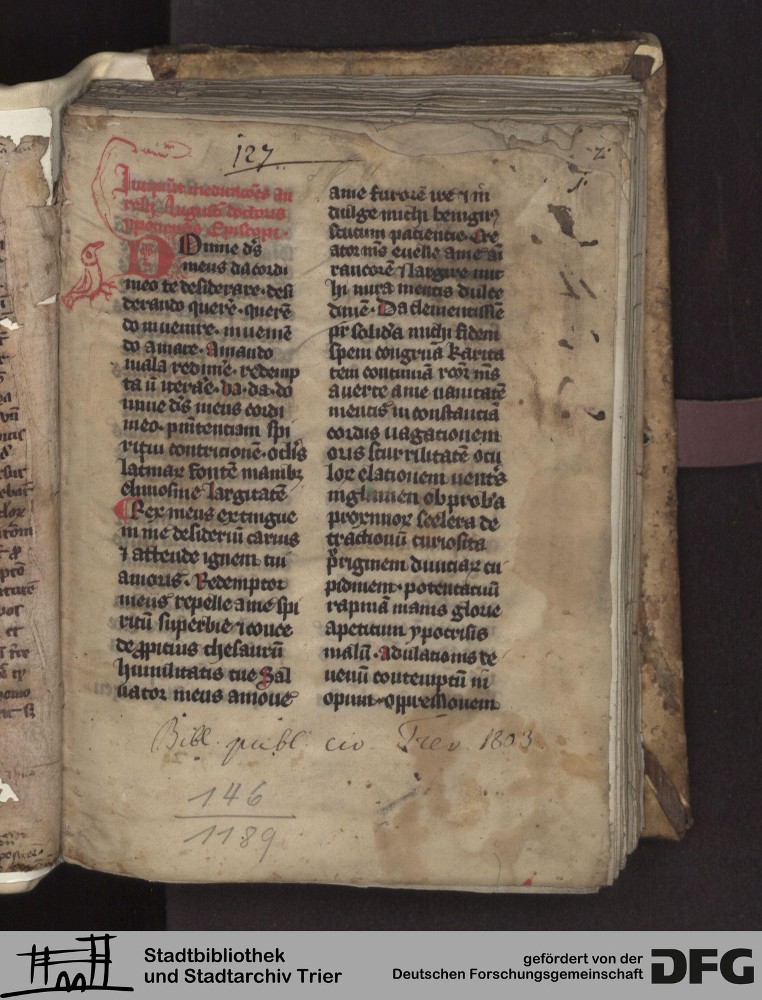 127
Incipiunt meditacões au
relii Augustī doctoris
ypponenš Episcopi.
Domine d's
meus da cordi
meo te desiderare. desi
derando querē. querē
do inuenire. inueniē
do amare. Amando
mala redimē. redemp
ta nō iterāe. da. da. do
mine d's meus cordi
meo. pnītentiam spi
ritui contricionē. oclis
lacrimar fontē manibz
elimosine largitatē
Rex meus extingue
in me desideriū carnis
ı accende ignem tui
amoris. Redemptor
meus repelle a me spi
ritū superbie ı conce
de ꝓpitius thesaurū
humilitatis tue Sal
uator meus amoue
a me furorē ire ı in
dulge michi benignꝰ
scutum patientie. Cre
ator mš euelle a me aī
rancorē ı largire mi
hi mira mentis dulce
dinē. Da clementissīe
pr solidā michi fidem
spem congruā karita
tem continuā rcor mš
auerte a me uanitatē
mentis inconstantiā
cordis uagationem
oris scurrilitatē ocu
lor elationem uentis
ingluuiem obprobia
proximor scelera de
tractionū curiosita
tis pruriginem diuitiar cu
piditatem. potentatuū
rapinā inanis glorie
apetitum ypocrisis
malū. Adulationis ue
nenū contemptū in
opum. oppressionem
Bibl. publ. civ. Trev. 1803
146
1189
Stadtbibliothek
und Stadtarchiv Trier
gefördert von der
Deutschen Forschungsgemeinschaft
DFG